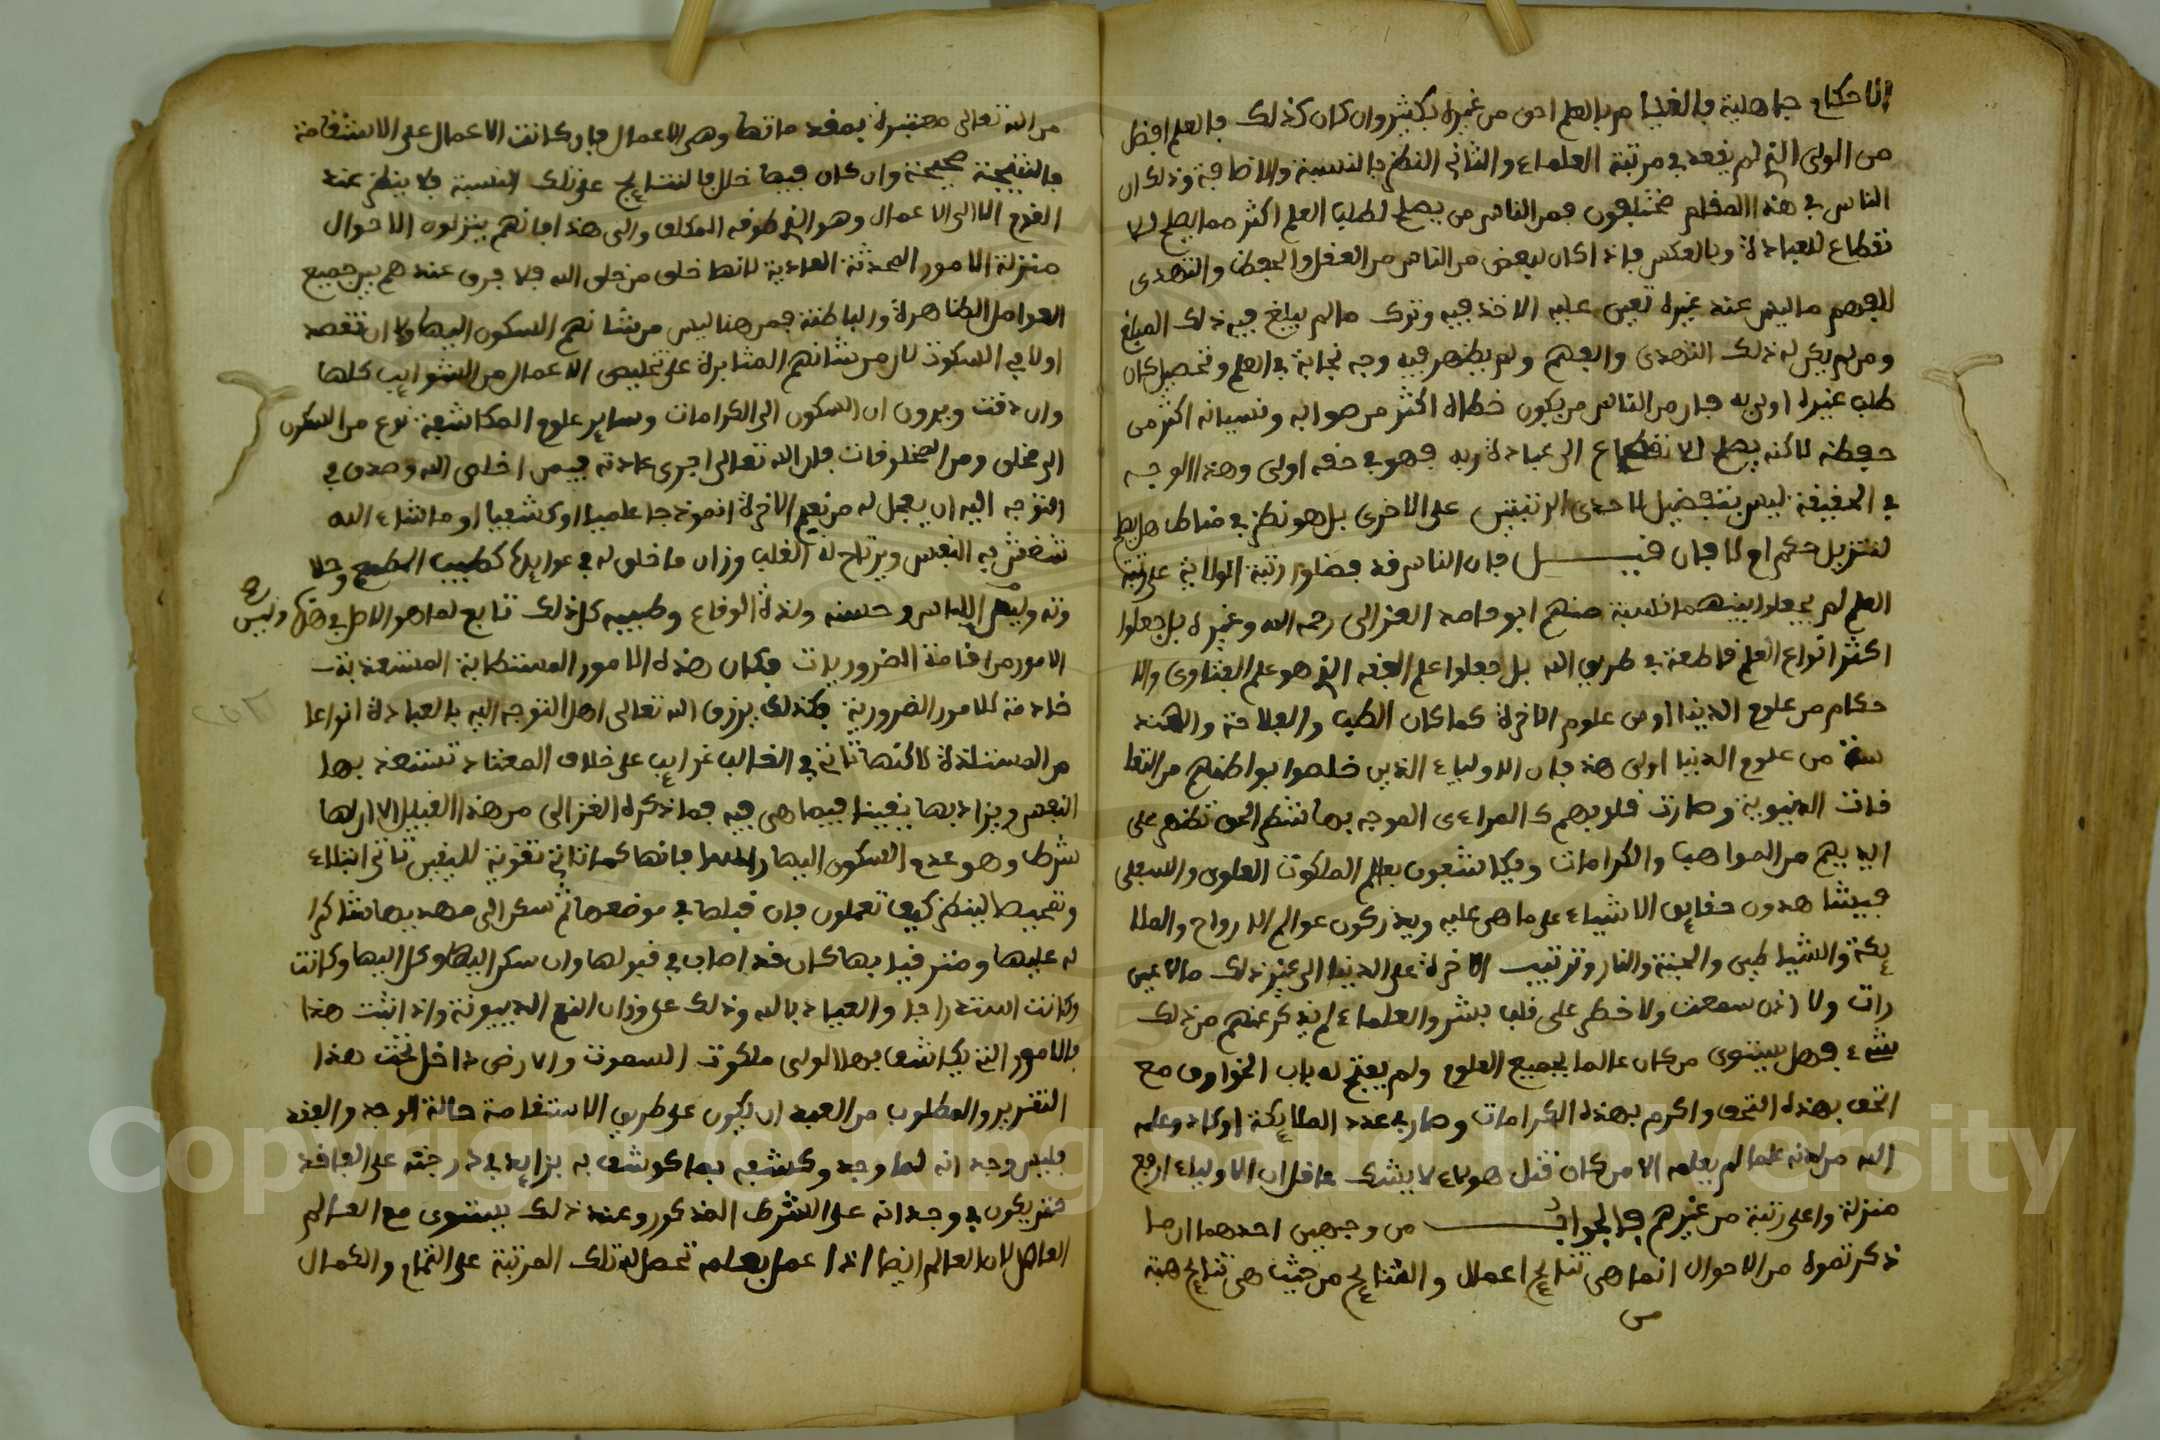 الاحكام جاهلية فالقيام بالعلم احق من غيره بكثير وان كان كذلك فالعلم افضل
من الولي الذي لم يقعد في مرتبة العلماء والثاني النظر بالنسبة والاضافة وذلك ان
الناس في هذا المقام مختلفون فمن الناس من يصلح لطلب العلم اكثر مما يصلح للا
نقطاع للعبادة وبالعكس فاذا كان لبعض من الناس من العقل والحفظ والتهدي
للفهم ما ليس عند غيره تعين عليه الاخذ فيه وترك ما لم يبلغ فيه ذلك المبلغ
ومن لم يكن له ذلك التهدي والفهم ولم يظهر فيه وجه نجابة في العلم وتحصيل كان
طلب غيره اولى به فان من الناس من يكون خطاه اكثر من صوابه ونسيانه اكثر من
حفظه لاكنه يصلح للانقطاع الى عبادة ربه فهو في حقه اولى وهذا الوجه
في الحقيقة ليس بتفضيل لاحدى الرتبتين على الاخرى بل هو نظر في مناط هل يصلح
لتنزيل حكم ام لا فان قيل فان الناس قد فضلوا رتبة الولاية على رتبة
العلم لم يجعلوا بينهما نسبة منهم ابو حامد الغزالي رحمه الله وغيره بل جعلوا
اكثر انواع العلم قاطعة في طريق الله بل جعلوا علم الفقه الذي هو علم الفتاوى والا
حكام من علوم الدنيا او من علوم الاخرة كما كان الطب والفلاحة والهند
سة من علوم الدنيا اولى هذه فان الاولياء الذين خلصوا بواطنهم من التعلا
قات الدنيوية وصارت قلوبهم كالمراءى الموجه بها شطر الحق تطلع على
اليديهم من المواهب والكرامات ويكاشفون بعلم الملكوت العلوي والسفلي
فيشاهدون حقايق الاشياء على ما هي عليه ويدركون عوالم الارواح والملا
يكة والشياطين والجنة والنار وترتيب الاخرة على الدنيا الى غير ذلك مالا عين
رات ولا اذن سمعت ولا خطر على قلب بشر والعلماء لم يذكر عنهم من ذلك
شيء فهل يستوي من كان عالما بجميع العلوم ولم يفتح له باب الخوارق مع
اتحف بهذه التحف واكرم بهذه الكرامات وصار في عدد الملايكة او كاد وعلمه
الله من لدنه علما لم يعلمه الا من كان مثل هولاء لا يشك عاقل ان الاولياء ارفع
منزلة واعلى رتبة من غيرهم فالجواب من وجهين احدهما ان ما
ذكرتموه من الاحوال انما هي نتايج اعمال والنتايج من حيث هي نتايج هبة
من
من الله تعالى معتبرة بمقدماتها وهي الاعمال فان كانت الاعمال على الاستقامة
فالنتيجة صحيحة وان كان فيها خلل فالنتايج على تلك النسبة فلا ينظر عند
القوم الا الى الاعمال وهو الذي طوقه المكلف والى هذا فانهم ينزلون الاحوال
منزلة الامور المحدثة العادية لانها خلق من خلق الله فلا فرق عندهم بين جميع
العوامل الظاهرة والباطنة فمن هنا ليس من شانهم السكون اليها ولا ان تقصد
اولا في السكون لان من شانهم المثابرة على تخليص الاعمال من الشوايب كلها
وان دقت ويرون ان السكون الى الكرامات وساير علوم المكاشفة نوع من السكون
الى مخلق ومن المخلوقات فان الله تعالى اجرى عادته فيمن اخلص الله وصدق في
التوجه اليه ان يعجل له من نعيم الاخرة انموذجا علميا او كشفيا او ما شاء الله
تنتعش به النفس ويرتاح له القلب وزان ما خلق له في عوايدها كطيب المطعم وحلا
وته ولين اللباس وحسنه ولذة الوقاع وطيبه كل ذلك تابع لما هو الاصل في هذه وليس
الامور من اقامة الضروريات فكان هذه الامور المستطابة المستعذبة
خادمة للامور الضرورية فكذلك يرزق الله تعالى اهل التوجه اليه بالعبادة انواعا
من المستلذة لاكنها تاتي في الغالب غرايب على خلاف المعتاد تستعذ بها
النفس ويزاد بها يقينا فيما هي فيه فما ذكره الغزالي من هذا القبيل الا ان لها
شرطا وهو عدم السكون اليها فانها كما تاتي تقوية لليقين تاتي ابتلاء
وتمحيصا لينظر كيف تعملون فان قبلها في موضعها ثم شكر الى مهديها شاكرا
له عليها ومن قبلها كان قد اصاب في قبولها وان سكن اليها وكل اليها وكانت
وكانت استدراجا والعياذ بالله وذلك على وزان النعم الدنيوية واذا ثبت هذا
فالامور التي يكاشف بها الولي من ملكوت السموت والارض داخل تحت هذا
التقرير والمطلوب من العبد ان يكون على طريق الاستقامة حالة الوجد والفقد
فليس وجدانه لما وجد وكشفه بما كوشف به بزايد في درجته على الفاقد
فمن يكون في وجدانه على الشرط المذكور وعند ذلك يستوي مع العالم
العامل لان العالم ايضا اذا عمل بعلمه تحصل له تلك المرتبة على التمام والكمال